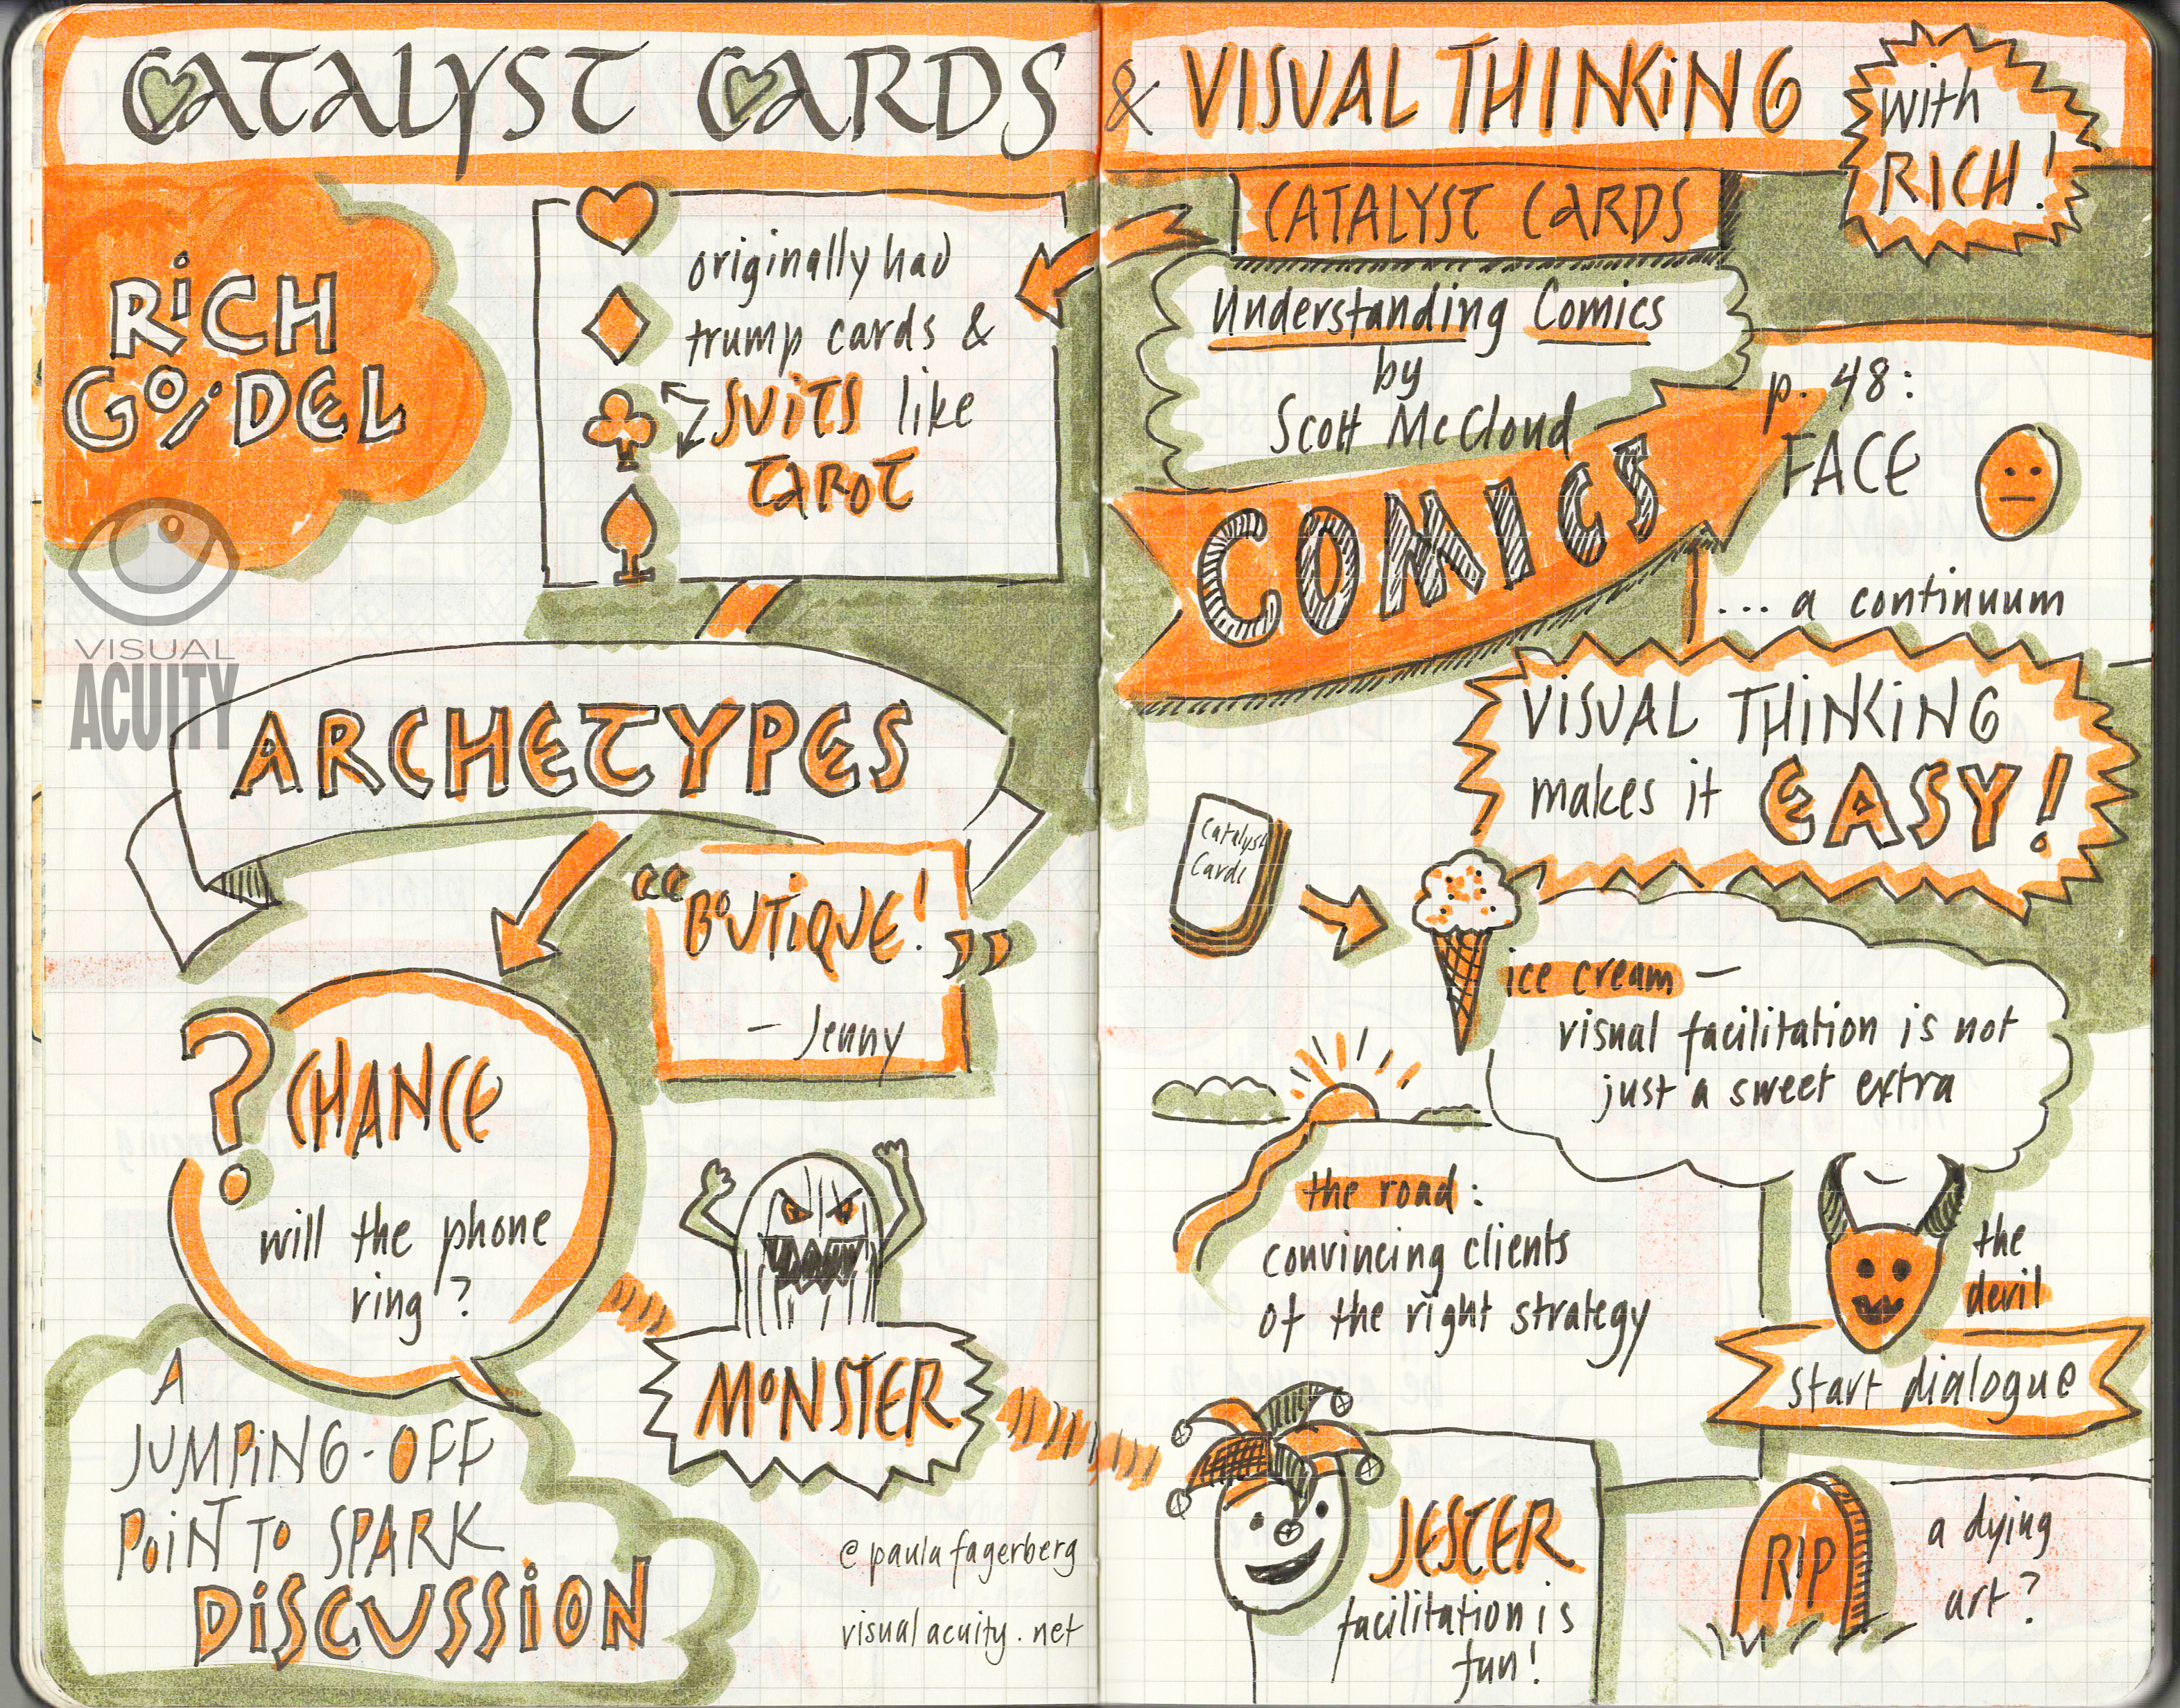 CATALYST CARDS & VISUAL THINKING
with
RICH!
RICH
GO/DEL
originally had
trump cards &
SUITS like
TAROT
VISUAL
ACUITY
ARCHETYPES
"BOUTIQUE!"
- Jenny
? CHANCE
will the phone
ring?
MONSTER
A
JUMPING-OFF
POINT TO SPARK
DISCUSSION
@paulafagerberg
visualacuity.net
CATALYST CARDS
Understanding Comics
by
Scott McCloud
COMICS
p. 48:
FACE
... a continuum
VISUAL THINKING
makes it EASY!
Catalyst
Cards
ice cream —
visual facilitation is not
just a sweet extra
the road:
convincing clients
of the right strategy
the
devil
start dialogue
JESTER
facilitation is
fun!
RIP
a dying
art?